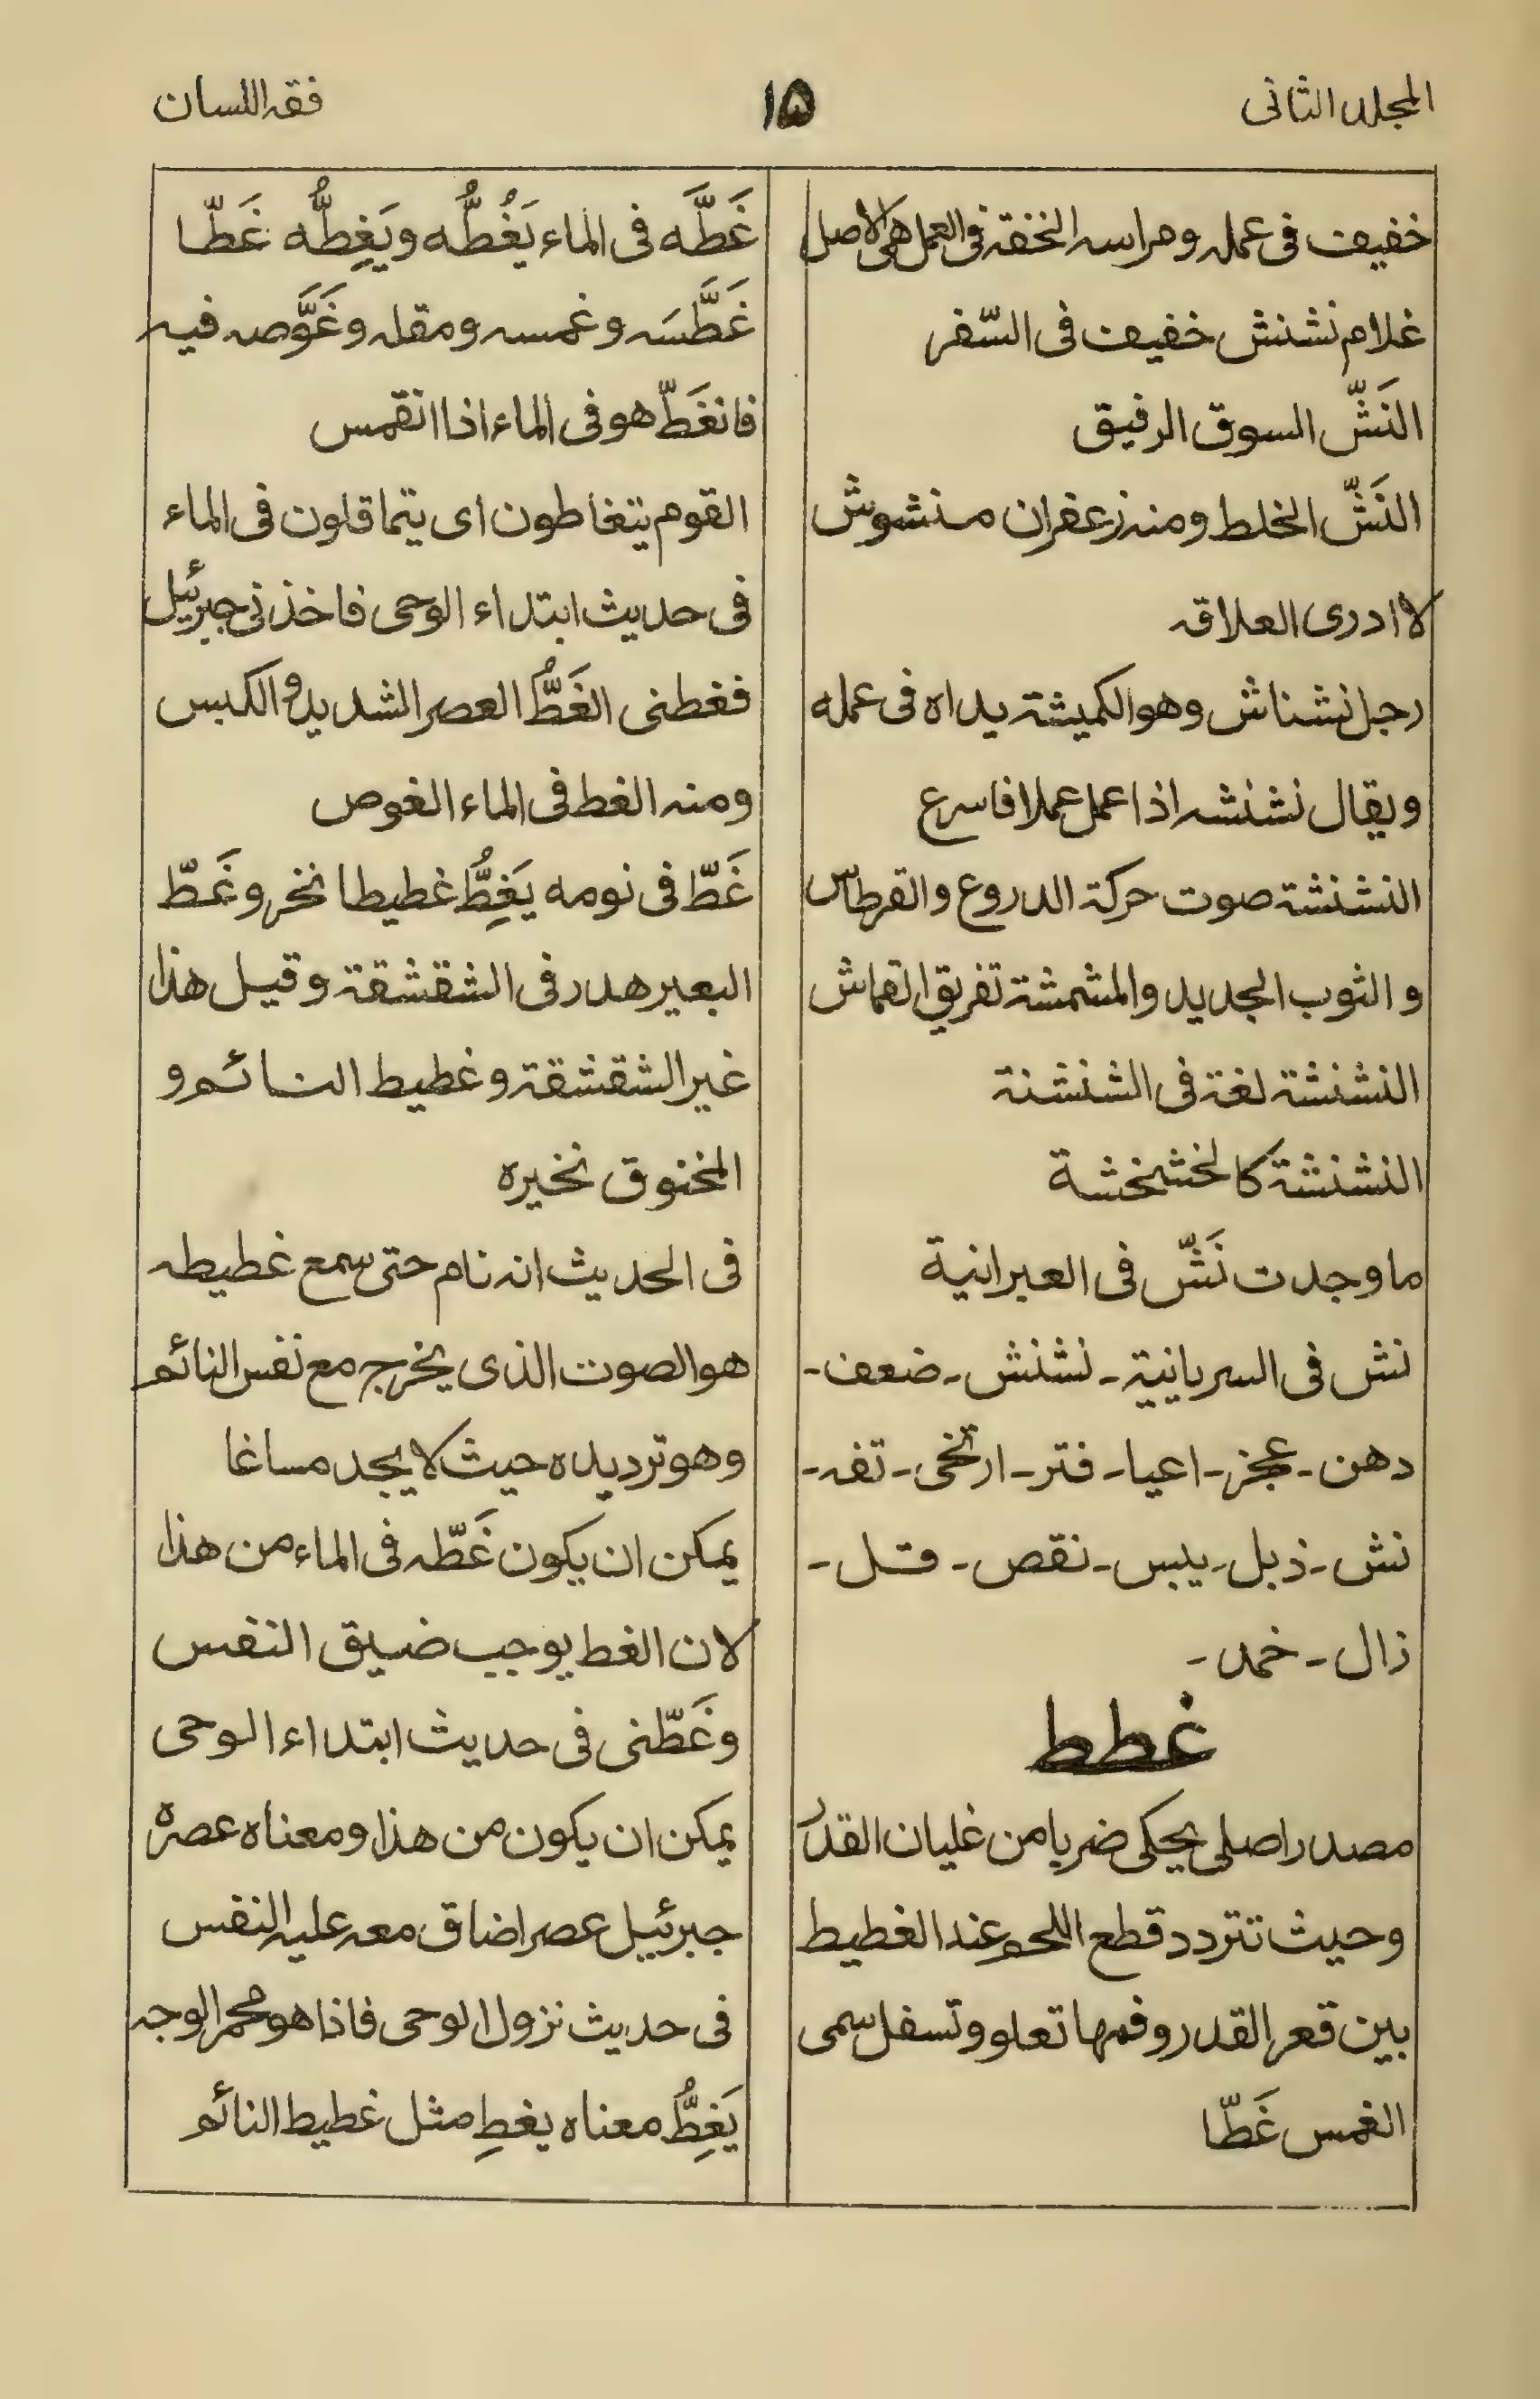 المجلد الثانى
١۵
فقه اللسان
خفيف فى عمله ومراسه الخفة فى العمل هى الاصل
غلام نشنش خفيف فى السّفر
النَشّ السوق الرفيق
النَشّ الخلط ومنه زعفران منشوش
لا ادرى العلاقه
رجل نشناش وهو الكميشة يداه فى عمله
ويقال نشنشه اذا عمل عملا فاسرع
النشنشة صوت حركة الدروع والقرطاس
و الثوب الجديد والمشمشة تفريق القماش
النشنشة لغة فى الشنشنة
النشنشة كالخشخشة
ما وجدت نَشّ فى العبرانية
نش فى السريانية - نشنش - ضعف -
دهن - عجز - اعيا - فتر - ارتخى - تفه -
نش - ذبل - يبس - نقص - قتل -
زال - خمد -
غطط
مصدر اصلى يحكى ضربا من غليان القدر
وحيث تتردد قطع اللحم عند الغطيط
بين قعر القدر وفمها تعلو وتسفل سمى
الغمس غَطّا
غَطَّه فى الماء يَغُطُّه ويَغِطُّه غَطّا
غَطَّسَه وغمسه ومقله وغَوَّصه فيه
فانغَطّ هو فى الماء اذا انقمس
القوم يتغاطون اى يتماقلون فى الماء
فى حديث ابتداء الوحى فاخذنى جبرئيل
فغطنى الغَطُّ العصر الشديد والكبس
ومنه الغط فى الماء الغوص
غَطّ فى نومه يَغِطُّ غطيطا نخر وغَطّ
البعير هدر فى الشقشقة وقيل هذا
غير الشقشقة وغطيط النائم و
المخنوق نخيره
فى الحديث انه نام حتى سمع غطيطه
هو الصوت الذى يخرج مع نفس النائم
وهو ترديده حيث لا يجد مساغا
يمكن ان يكون غَطّه فى الماء من هذا
لان الغط يوجب ضيق النفس
وغَطّنى فى حديث ابتداء الوحى
يمكن ان يكون من هذا ومعناه عصره
جبرئيل عصرا ضاق معه عليه النفس
فى حديث نزول الوحى فاذا هو محمر الوجه
يَغِطُّ معناه يغطِ مثل غطيط النائم